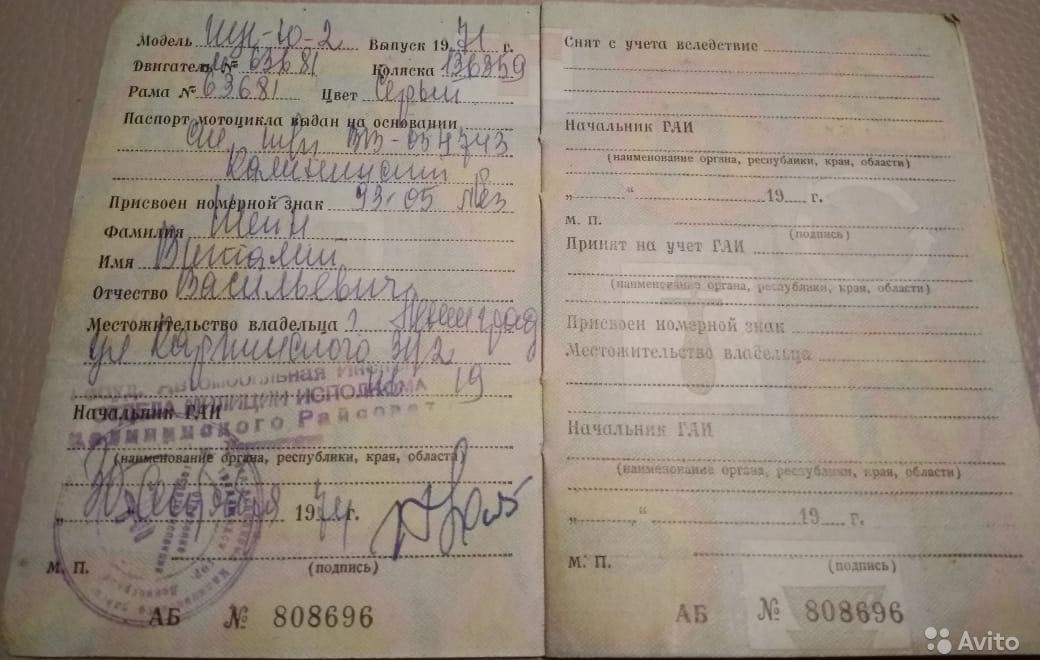 Модель ИЖ-Ю-2 Выпуск 1971 г.
Двигатель № 63681 Коляска 136359
Рама № 63681 Цвет Серый
Паспорт мотоцикла выдан на основании
ВЗ-054743
Калининский
Присвоен номерной знак 93-05 лез
Фамилия Шеин
Имя Виталий
Отчество Васильевич
Местожительство владельца г Ленинград
ул Карпинского
19
Автомобильная
ОТДЕЛА МИЛИЦИИ ИСПОЛКОМА
Калининского Райсовета
Начальник ГАИ
(наименование органа, республики, края, области)
197 г.
М. П. (подпись)
АБ № 808696
Снят с учета вследствие
Начальник ГАИ
(наименование органа, республики, края, области)
„ “ 19 г.
М. П.
(подпись)
Принят на учет ГАИ
(наименование органа, республики, края, области)
Присвоен номерной знак
Местожительство владельца
Начальник ГАИ
(наименование органа, республики, края, области)
„ “ 19 г.
М. П. (подпись)
АБ № 808696
Avito